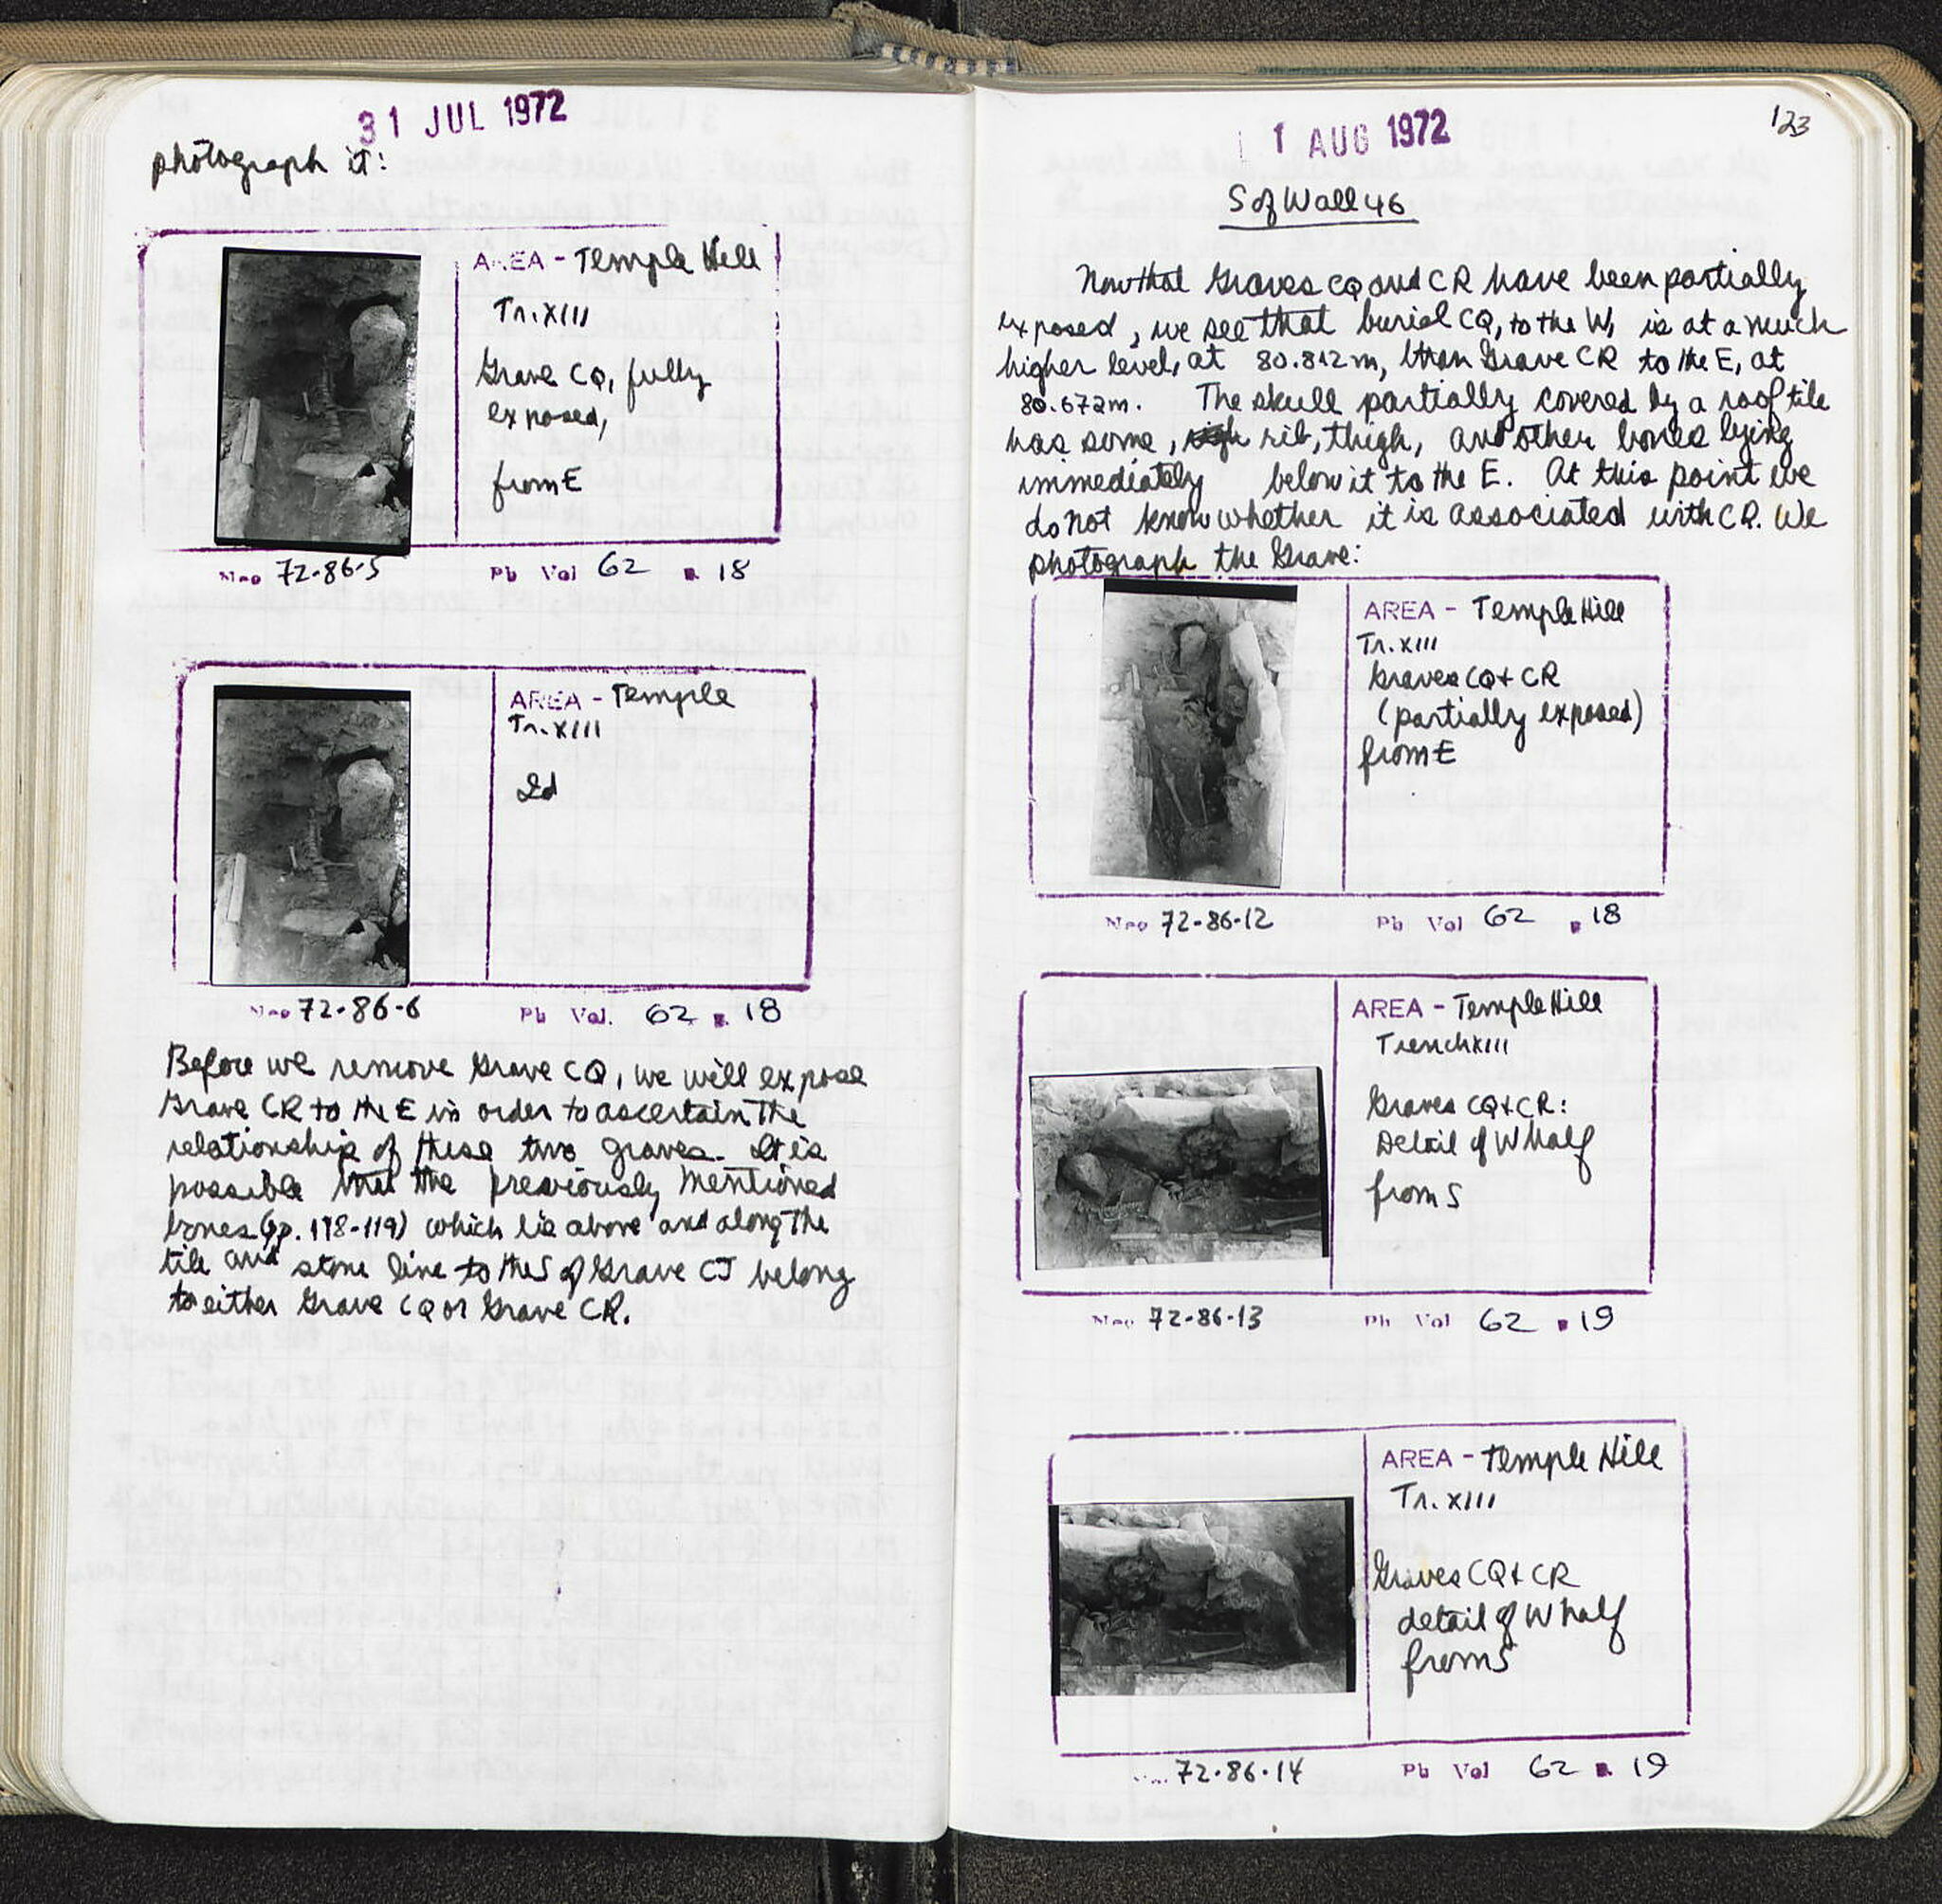 31 JUL 1972
photograph it:
AREA - Temple Hill
Tr. XIII
Grave CQ, fully
exposed,
from E
Neg 72-86-5 Pb Vol 62 P. 18
AREA - Temple
Tr. XIII
Id
Neg 72-86-6 Pb Vol. 62 P. 18
Before we remove Grave CQ, we will expose
Grave CR to the E in order to ascertain the
relationship of these two graves. It is
possible that the previously mentioned
bones (pp. 118-119) which lie above and along the
tile and stone line to the S of Grave CJ belong
to either Grave CQ or Grave CR.
1 AUG 1972
123
S of Wall 46
Now that Graves CQ and CR have been partially
exposed, we see that burial CQ, to the W, is at a much
higher level, at 80.812m, than Grave CR to the E, at
80.672m. The skull partially covered by a roof tile
has some, rib, thigh, and other bones lying
immediately below it to the E. At this point we
do not know whether it is associated with CR. We
photograph the Grave:
AREA - Temple Hill
Tr. XIII
Graves CQ + CR
(partially exposed)
from E
Neg 72-86-12 Pb Vol 62 P. 18
AREA - Temple Hill
Trench XIII
Graves CQ + CR:
Detail of W half
from S
Neg 72-86-13 Pb Vol 62 P. 19
AREA - Temple Hill
Tr. XIII
Graves CQ + CR
detail of W half
from S
72-86-14 Pb Vol 62 P. 19